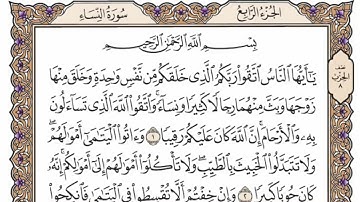 سُورَةُ النِّسَاءِ الجُزْءُ الرَّابِعُ
بِسْمِ اللَّهِ الرَّحْمَٰنِ الرَّحِيمِ
يَٰٓأَيُّهَا النَّاسُ اتَّقُوا رَبَّكُمُ الَّذِي خَلَقَكُم مِّن نَّفْسٍ وَٰحِدَةٍ وَخَلَقَ مِنْهَا
زَوْجَهَا وَبَثَّ مِنْهُمَا رِجَالًا كَثِيرًا وَنِسَآءً ۚ وَاتَّقُوا اللَّهَ الَّذِي تَسَآءَلُونَ
بِهِۦ وَالْأَرْحَامَ ۚ إِنَّ اللَّهَ كَانَ عَلَيْكُمْ رَقِيبًا ١ وَءَاتُوا الْيَتَٰمَىٰٓ أَمْوَٰلَهُمْ ۖ
وَلَا تَتَبَدَّلُوا الْخَبِيثَ بِالطَّيِّبِ ۖ وَلَا تَأْكُلُوٓا أَمْوَٰلَهُمْ إِلَىٰٓ أَمْوَٰلِكُمْ ۚ إِنَّهُۥ
كَانَ حُوبًا كَبِيرًا ٢ وَإِنْ خِفْتُمْ أَلَّا تُقْسِطُوا فِي الْيَتَٰمَىٰ فَانكِحُوا